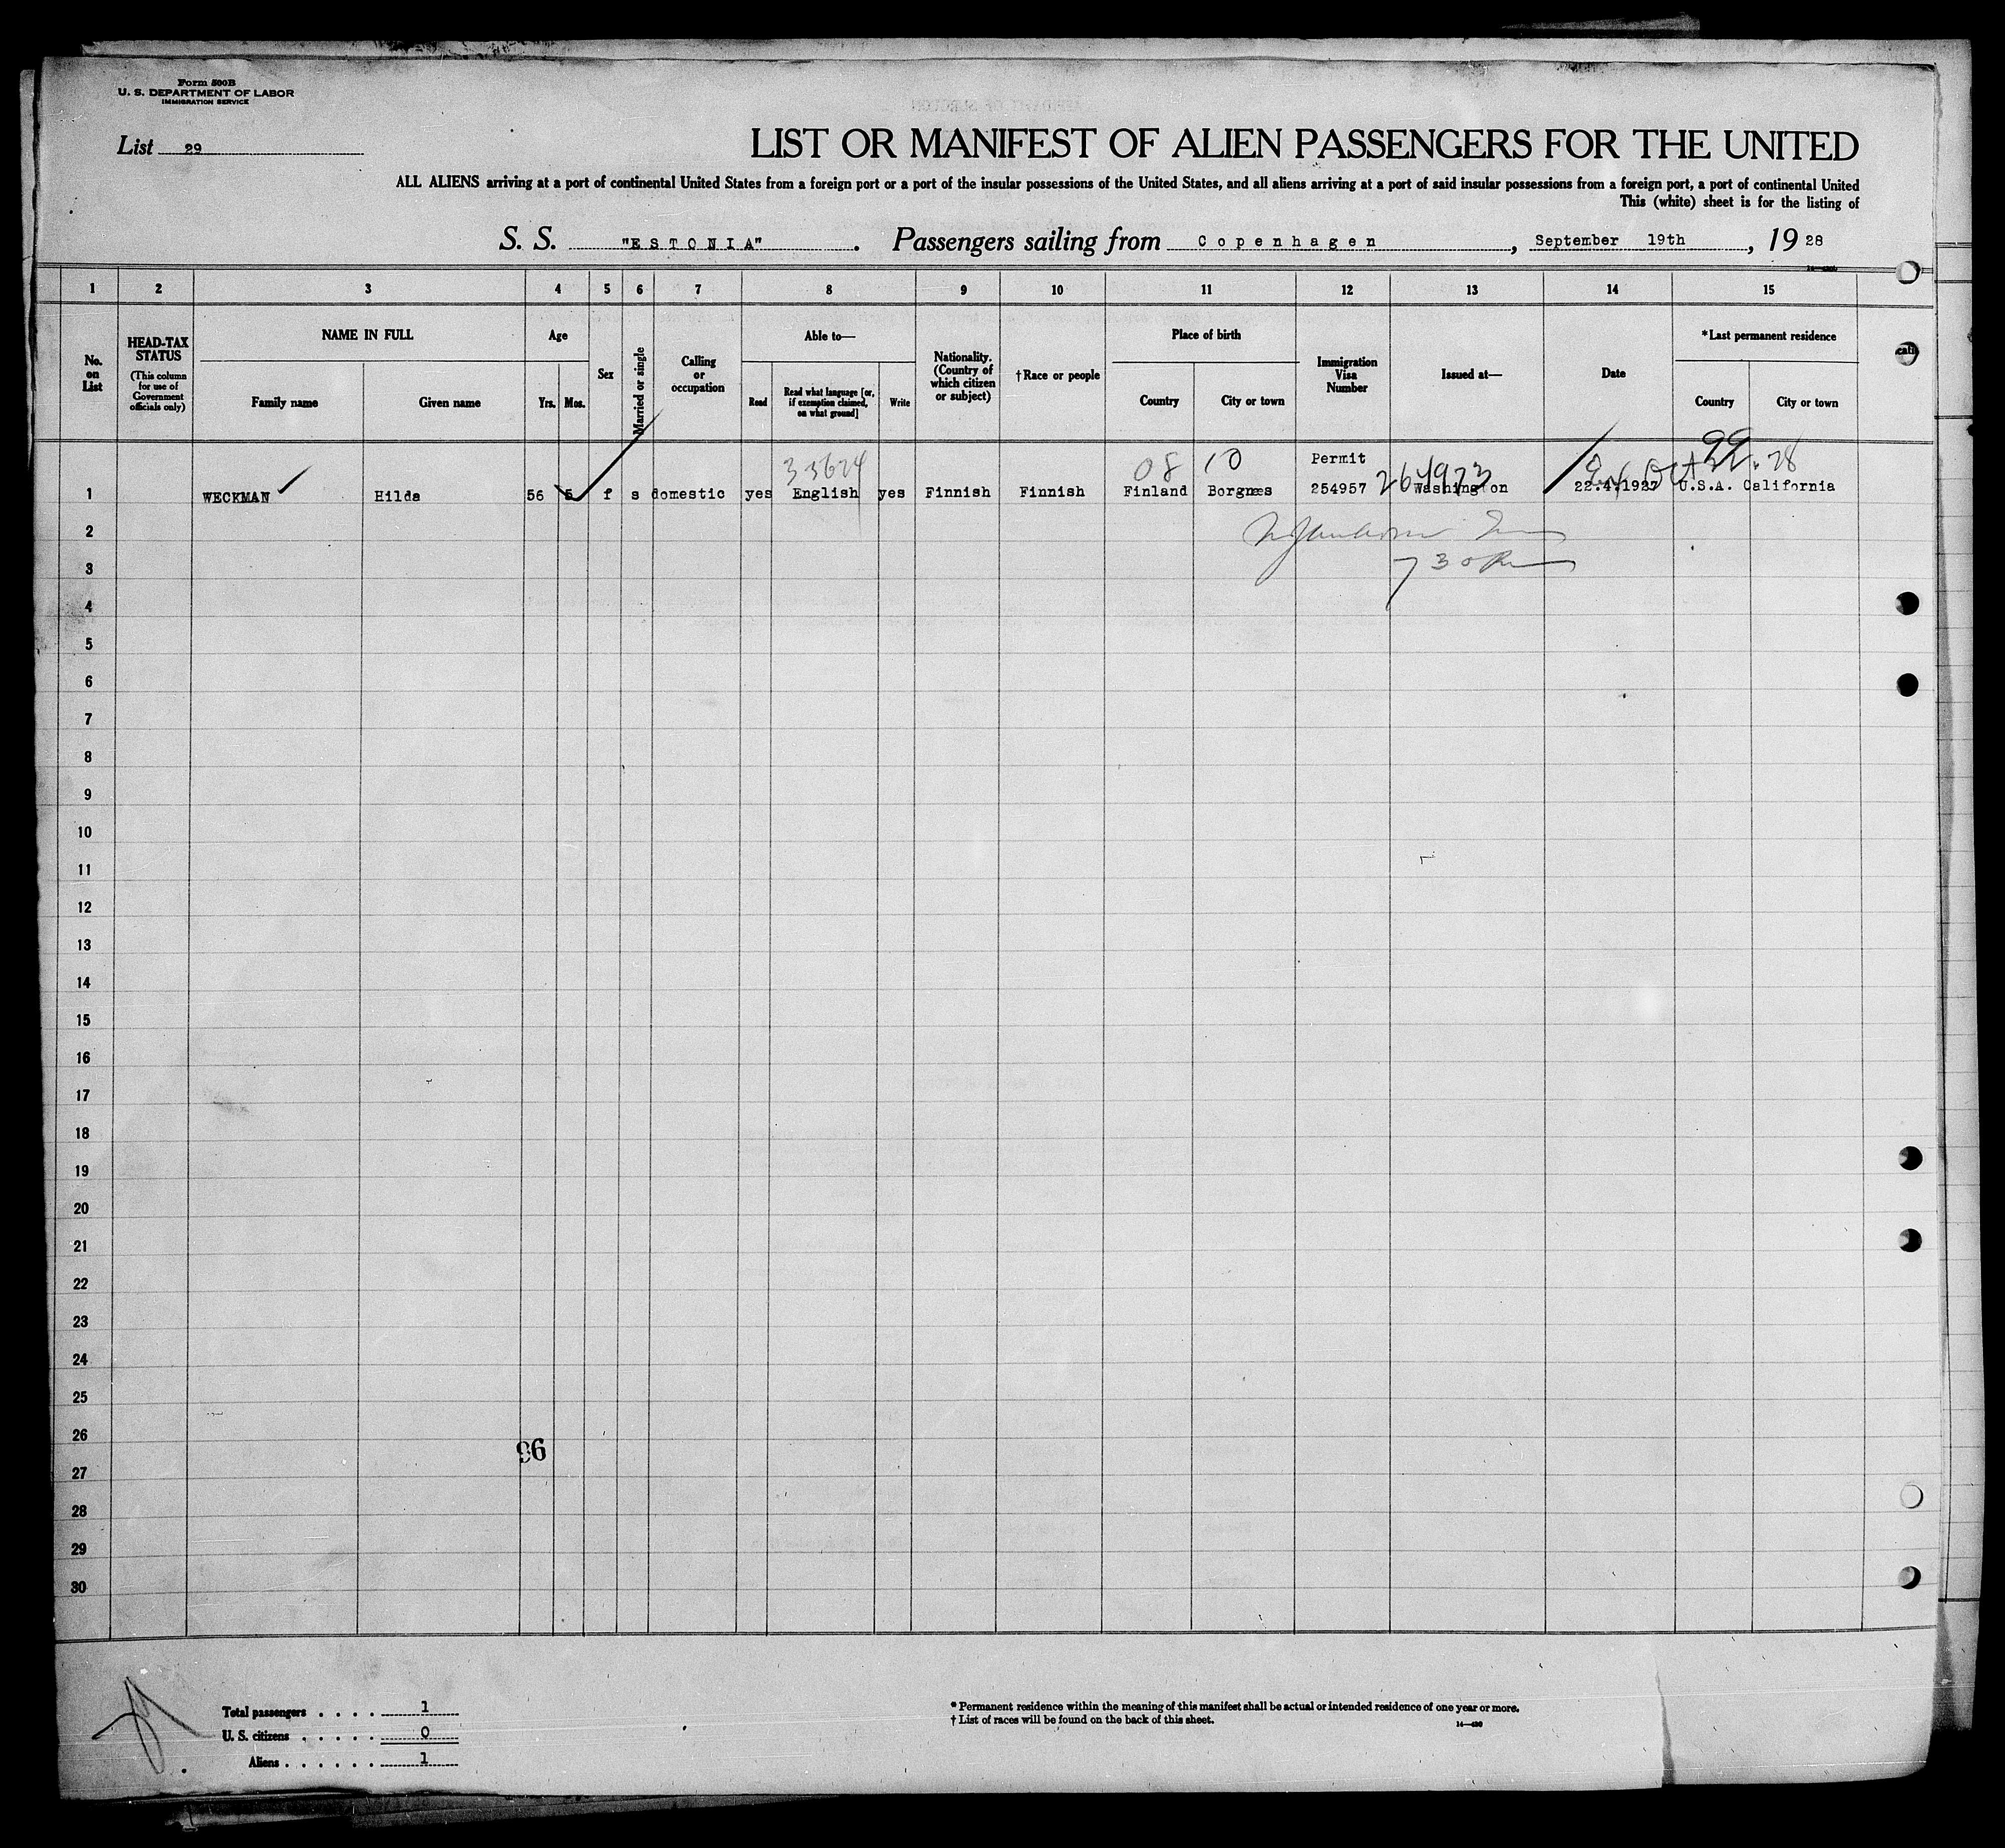 Form 500B
U. S. DEPARTMENT OF LABOR
IMMIGRATION SERVICE
List 29
LIST OR MANIFEST OF ALIEN PASSENGERS FOR THE UNITED
ALL ALIENS arriving at a port of continental United States from a foreign port or a port of the insular possessions of the United States, and all aliens arriving at a port of said insular possessions from a foreign port, a port of continental United
This (white) sheet is for the listing of
S. S. "ESTONIA". Passengers sailing from Copenhagen, September 19th, 19 28
1 2 3 4 5 6 7 8 9 10 11 12 13 14 15
No. on List
HEAD-TAX STATUS
(This column for use of Government officials only)
NAME IN FULL
Family name
Given name
Age
Yrs.
Mos.
Sex
Married or single
Calling or occupation
Able to—
Read
Read what language [or, if exemption claimed, on what ground]
Write
Nationality. (Country of which citizen or subject)
†Race or people
Place of birth
Country
City or town
Immigration Visa Number
Issued at—
Date
*Last permanent residence
Country
City or town
33624 08 10 Permit 99
1 WECKMAN Hilda 56 5 f s domestic yes English yes Finnish Finnish Finland Borgnæs 254957 Washington 22.4.1927 U.S.A. California
2
3
4
5
6
7
8
9
10
11
12
13
14
15
16
17
18
19
20
21
22
23
24
25
26
96
27
28
29
30
Total passengers . . . . 1
U. S. citizens . . . . . 0
Aliens . . . . . . 1
* Permanent residence within the meaning of this manifest shall be actual or intended residence of one year or more.
† List of races will be found on the back of this sheet.